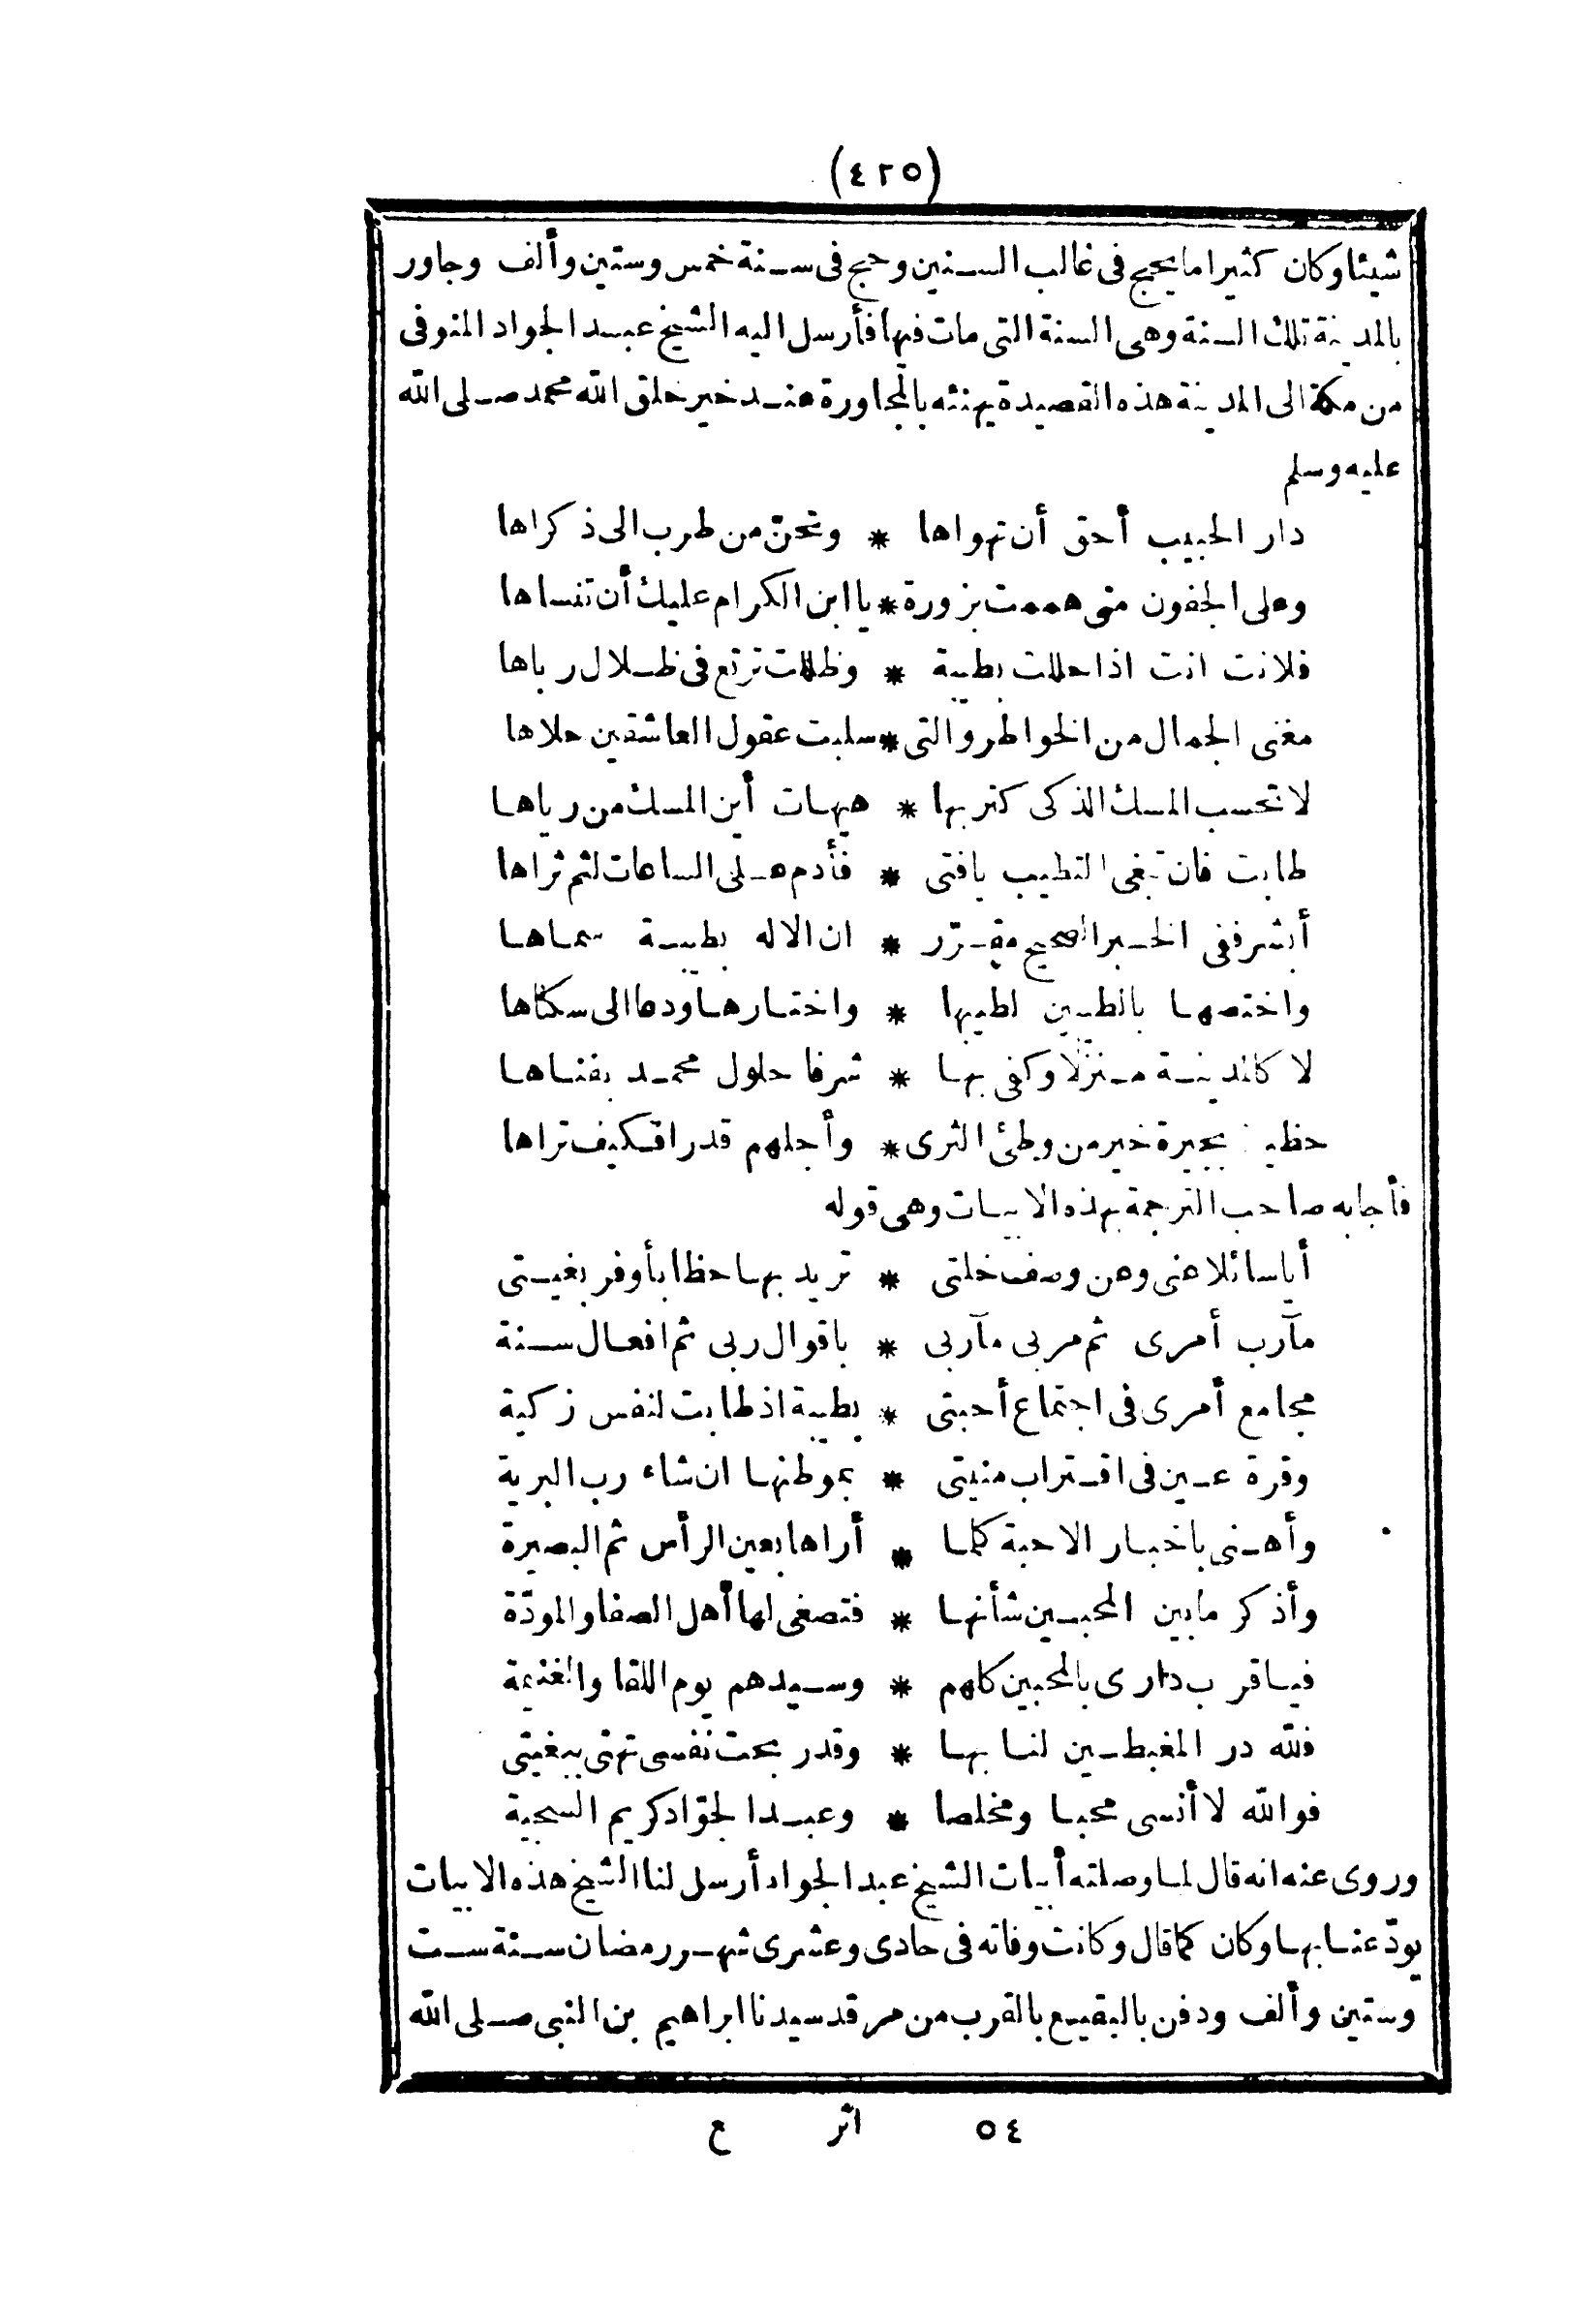 (٤٢٥)
شيئا وكان كثيرا ما يحج في غالب السنين وحج في سنة خمس وستين وألف وجاور
بالمدينة تلك السنة وهى السنة التى مات فيها فأرسل اليه الشيخ عبد الجواد المنوفى
من مكة الى المدينة هذه القصيدة يهنئه بالمجاورة عند خير خلق الله محمد صلى الله
عليه وسلم
دار الحبيب أحق أن تهواها * وتحنّ من طرب الى ذكراها
وعلى الجفون متى هممت بزورة * يا ابن الكرام عليك أن تغشاها
فلانت انت اذا حللت بطيبة * وظللت ترتع فى ظلال رباها
مغنى الجمال من الخواطر والتى * سلبت عقول العاشقين حلاها
لا تحسب المسك الذكى كتربها * هيهات أين المسك من رياها
طابت فان تبغى التطيب يافتى * فأدم على الساعات لثم ثراها
أبشر ففى الخبر الصحيح مقرّر * ان الاله بطيبة سماها
واختصها بالطيبين لطيبها * واختارها ودعا الى سكناها
لا كالمدينة منزلا وكفى بها * شرفا حلول محمد بفناها
حظيت بجيرة خير من وطئ الثرى * وأجلهم قدرا فكيف تراها
فأجابه صاحب الترجمة بهذه الابيات وهى قوله
أيا سائلا عنى وعن وصف خلتى * تريد بها حظا بأوفر بغيتى
مآرب أمرى ثم مربى مآربى * باقوال ربى ثم افعال سنة
مجامع أمرى فى اجتماع أحبتى * بطيبة اذ طابت لنفس زكية
وقرة عين فى اقتراب منيتى * بموطنها ان شاء رب البرية
وأهنى باخبار الاحبة كلما * أراها بعين الرأس ثم البصيرة
وأذكر مابين المحبين شأنها * فتصغى لها أهل الصفا والمودّة
فيا قرب دارى بالمحبين كلهم * وسيدهم يوم اللقا والغنيمة
فلله در المغبطين لنا بها * وقد ربحت نفسى تهنى ببغيتى
فوالله لا أنسى محبا ومخلصا * وعبد الجوّاد كريم السجية
وروى عنه انه قال لما وصلته أبيات الشيخ عبد الجواد أرسل لنا الشيخ هذه الابيات
يودّعنا بها وكان كما قال وكانت وفاته فى حادى وعشرى شهر رمضان سنة ست
وستين وألف ودفن بالبقيع بالقرب من مرقد سيدنا ابراهيم بن النبى صلى الله
٥٤ اثر ع